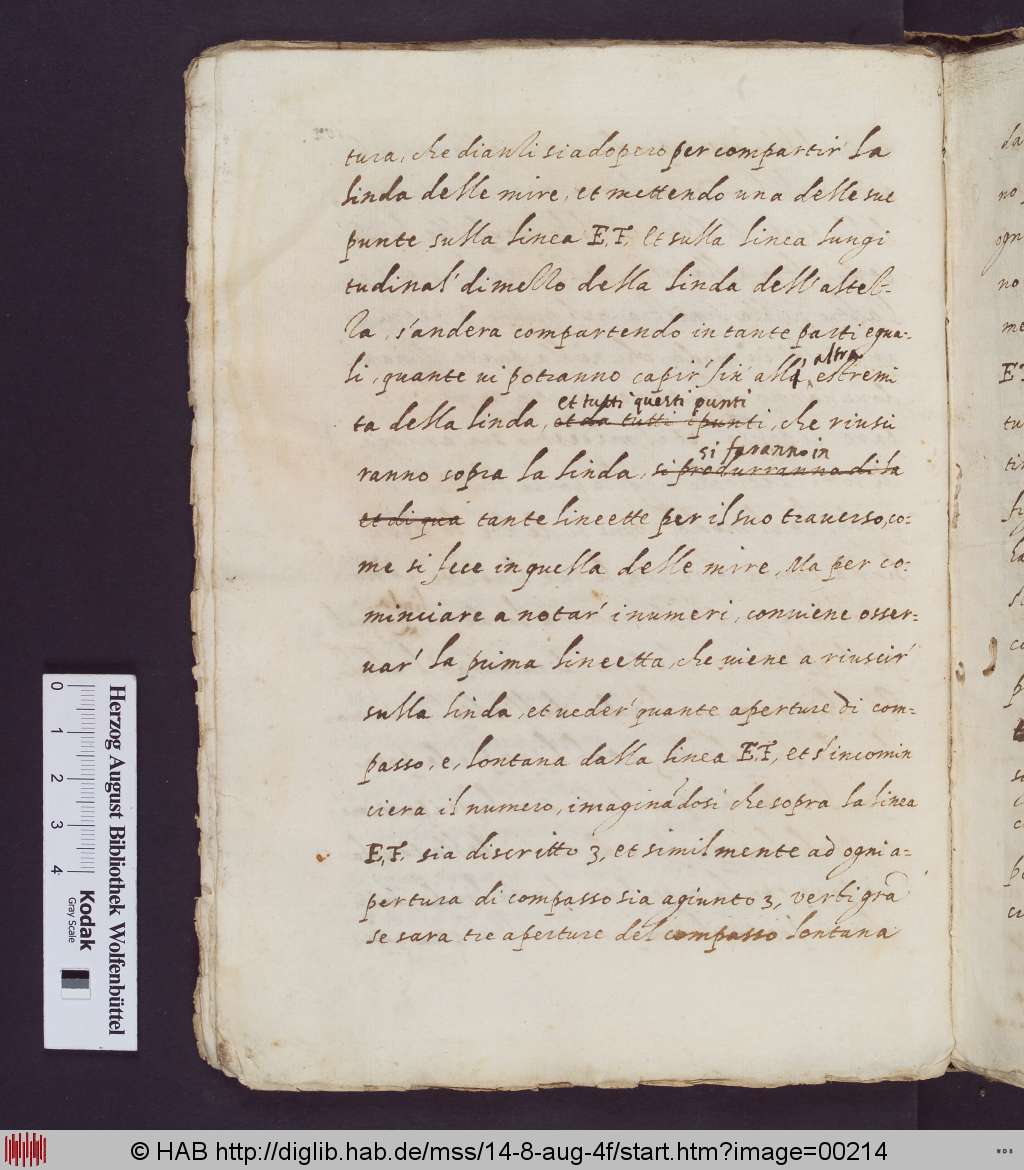 tura, che dianzi si adopero per compartir' la
linda delle mire, et mettendo una delle sue
punte sulla linea E,F, et sulla linea lungi
tudinal' di mezzo della linda dell'astel-
la, s'andera compartendo in tante parti equa-
li, quante vi potranno capir' sin' all' altra estremi
ta della linda, et da tutti i punti et tutti questi punti, che riusci
ranno sopra la linda, si produrranno di la si faranno in
et di qua tante lineette per il suo traverso, co-
me si fece in quella delle mire, Ma per co-
minciare a notar' i numeri, conviene osser-
var' la prima lineetta, che viene a riuscir'
sulla linda, et veder' quante aperture di com-
passo, e, lontana dalla linea E,F, et s'incomin
ciera il numero, imaginādosi che sopra la linea
E,F. sia discritto 3, et similmente ad ogni a-
pertura di compasso sia agiunto 3, verbi grā
se sara tre aperture del compasso lontana
da
no
ogn
no
me
E
tu
tir
Herzog August Bibliothek Wolfenbüttel
Kodak
Gray Scale
0 1 2 3 4
© HAB http://diglib.hab.de/mss/14-8-aug-4f/start.htm?image=00214